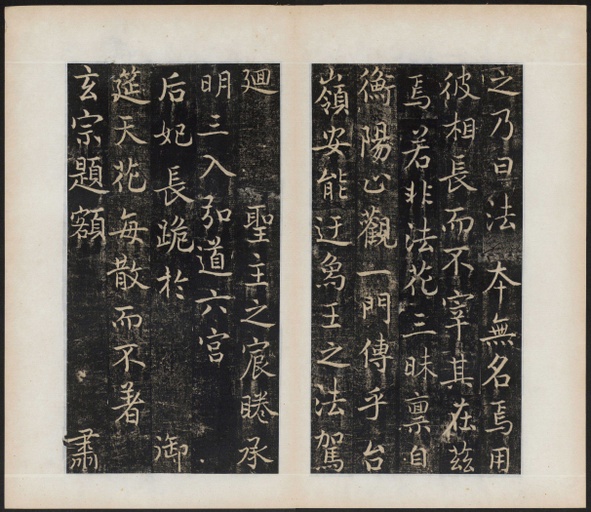 之乃曰法本無名焉用
彼相長而不宰其在茲
焉若非法花三昧禀自
衡陽止觀一門傳乎台
嶺安能迂象王之法駕
迴 聖主之宸睠承
明三入弘道六宮
后妃長跪於 御
筵天花每散而不著
玄宗題額 肅